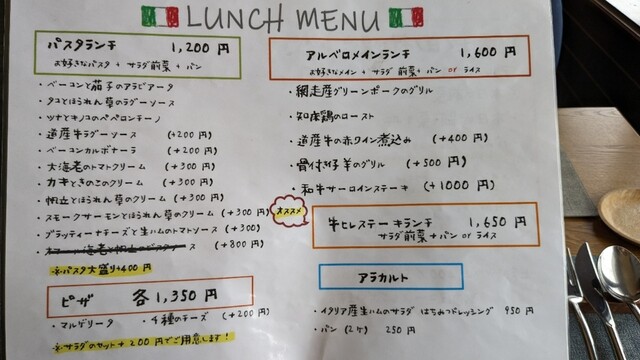 LUNCH MENU
パスタランチ 1,200 円
お好きなパスタ + サラダ前菜 + パン
・ベーコンと茄子のアラビアータ
・タコとほうれん草のラグーソース
・ツナとキノコのペペロンチーノ
・道産牛ラグーソース (+200 円)
・ベーコンカルボナーラ (+200 円)
・大海老のトマトクリーム (+300 円)
・カキときのこのクリーム (+300 円)
・帆立とほうれん草のクリーム (+300 円)
・スモークサーモンとほうれん草のクリーム (+300 円)
・ブラッティーナチーズと生ハムのトマトソース (+300 円)
ス (+800 円)
※パスタ大盛り+400 円
ピザ 各1,350 円
・マルゲリータ ・4種のチーズ (+200 円)
※サラダのセット+200 円でご用意します!
アルベロメインランチ 1,600 円
お好きなメイン + サラダ前菜 + パン or ライス
・網走産グリーンポークのグリル
・知床鶏のロースト
・道産牛の赤ワイン煮込み (+400 円)
・骨付き仔羊のグリル (+500 円)
・和牛サーロインステーキ (+1000 円)
オススメ
牛ヒレステーキランチ 1,650 円
サラダ前菜 + パン or ライス
アラカルト
・イタリア産生ハムのサラダ はちみつドレッシング 950 円
・パン (2ヶ) 250 円